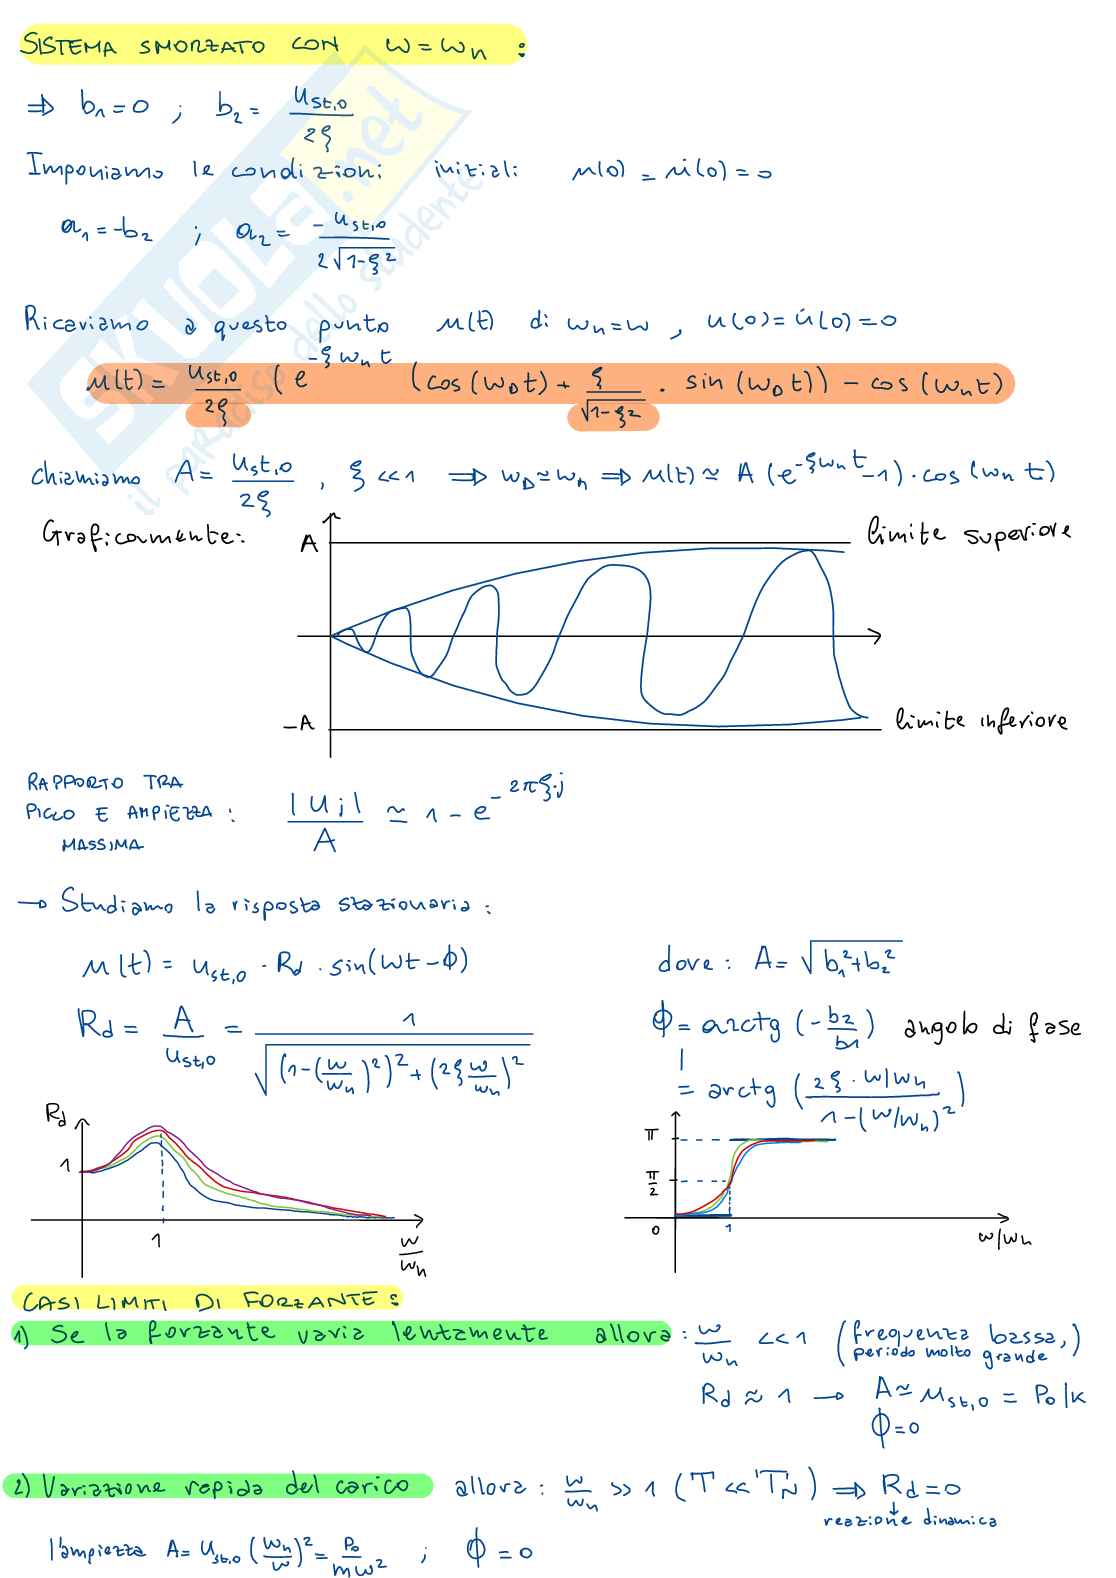 SISTEMA SMORZATO CON ω = ωn :
⇒ b1 = 0 ; b2 = ust,0 / 2ξ
Imponiamo le condizioni iniziali u(0) = u̇(0) = 0
a1 = -b2 ; a2 = -ust,0 / 2√1-ξ²
Ricaviamo a questo punto u(t) di ωn = ω , u(0) = u̇(0) = 0
u(t) = ust,0 / 2ξ (e^-ξωnt (cos(ωD t) + ξ / √1-ξ² · sin(ωD t)) - cos(ωn t)
chiamiamo A = ust,0 / 2ξ , ξ << 1 ⇒ ωD ≃ ωn ⇒ u(t) ≃ A (e^-ξωnt - 1) · cos(ωn t)
Graficamente:
A
limite superiore
-A
limite inferiore
RAPPORTO TRA
PICCO E AMPIEZZA :
MASSIMA
|uj| / A ≃ 1 - e^-2πξ·j
→ Studiamo la risposta stazionaria :
u(t) = ust,0 · Rd · sin(ωt - ϕ)
dove : A = √b1² + b2²
Rd = A / ust,0 = 1 / √(1-(ω/ωn)²)² + (2ξ ω/ωn)²
ϕ = arctg (-b2/b1) angolo di fase
= arctg (2ξ · ω/ωn / 1-(ω/ωn)²)
Rd
1
1
ω/ωn
π
π/2
0
1
ω/ωn
CASI LIMITI DI FORZANTE :
1) Se la forzante varia lentamente allora : ω/ωn << 1 (frequenza bassa,
periodo molto grande)
Rd ≈ 1 → A ≃ ust,0 = P0/k
ϕ = 0
2) Variazione rapida del carico allora : ω/ωn >> 1 (T << TN) ⇒ Rd = 0
↓
reazione dinamica
l'ampiezza A = ust,0 (ωn/ω)² = P0/mω² ; ϕ = 0
SKUOLA.net
il paradiso dello studente